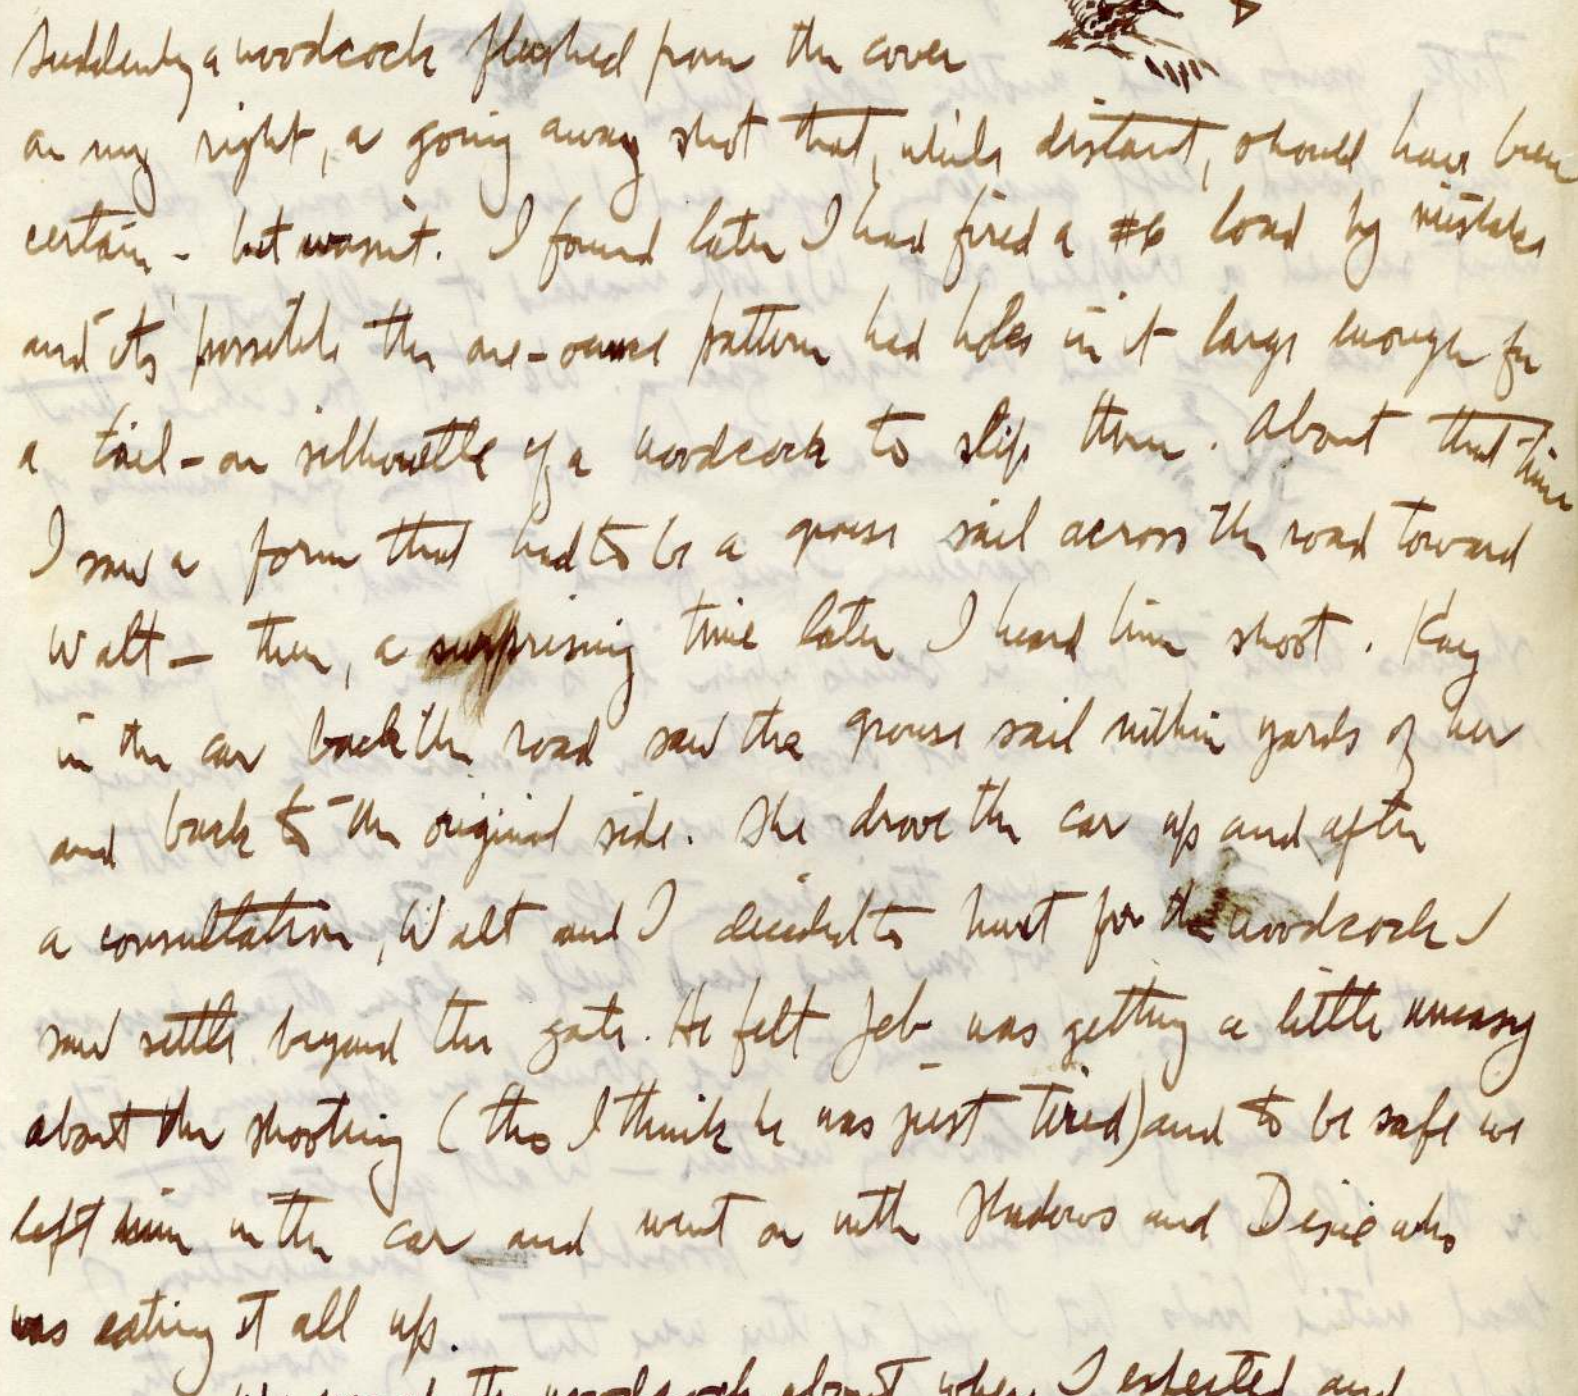 Suddenly a woodcock flushed from the cover
on my right, a going away shot that, while distant, should have been
certain - but wasn't. I found later I had fired a #6 load by mistake
and it's possible the one-ounce pattern had holes in it large enough for
a tail-on silhouette of a woodcock to slip thru. About that time
I saw a form that had to be a grouse sail across the road toward
Walt — then, a surprising time later I heard him shoot. Kay
in the car back the road saw the grouse sail within yards of her
and back to the original side. She drove the car up and after
a consultation, Walt and I decided to hunt for the woodcock I
saw settle beyond the gate. He felt Jeb was getting a little uneasy
about the shooting (tho I think he was just tired) and to be safe we
left him in the car and went on with Shadows and Dixie who
was eating it all up.
the woodcock about where I expected and